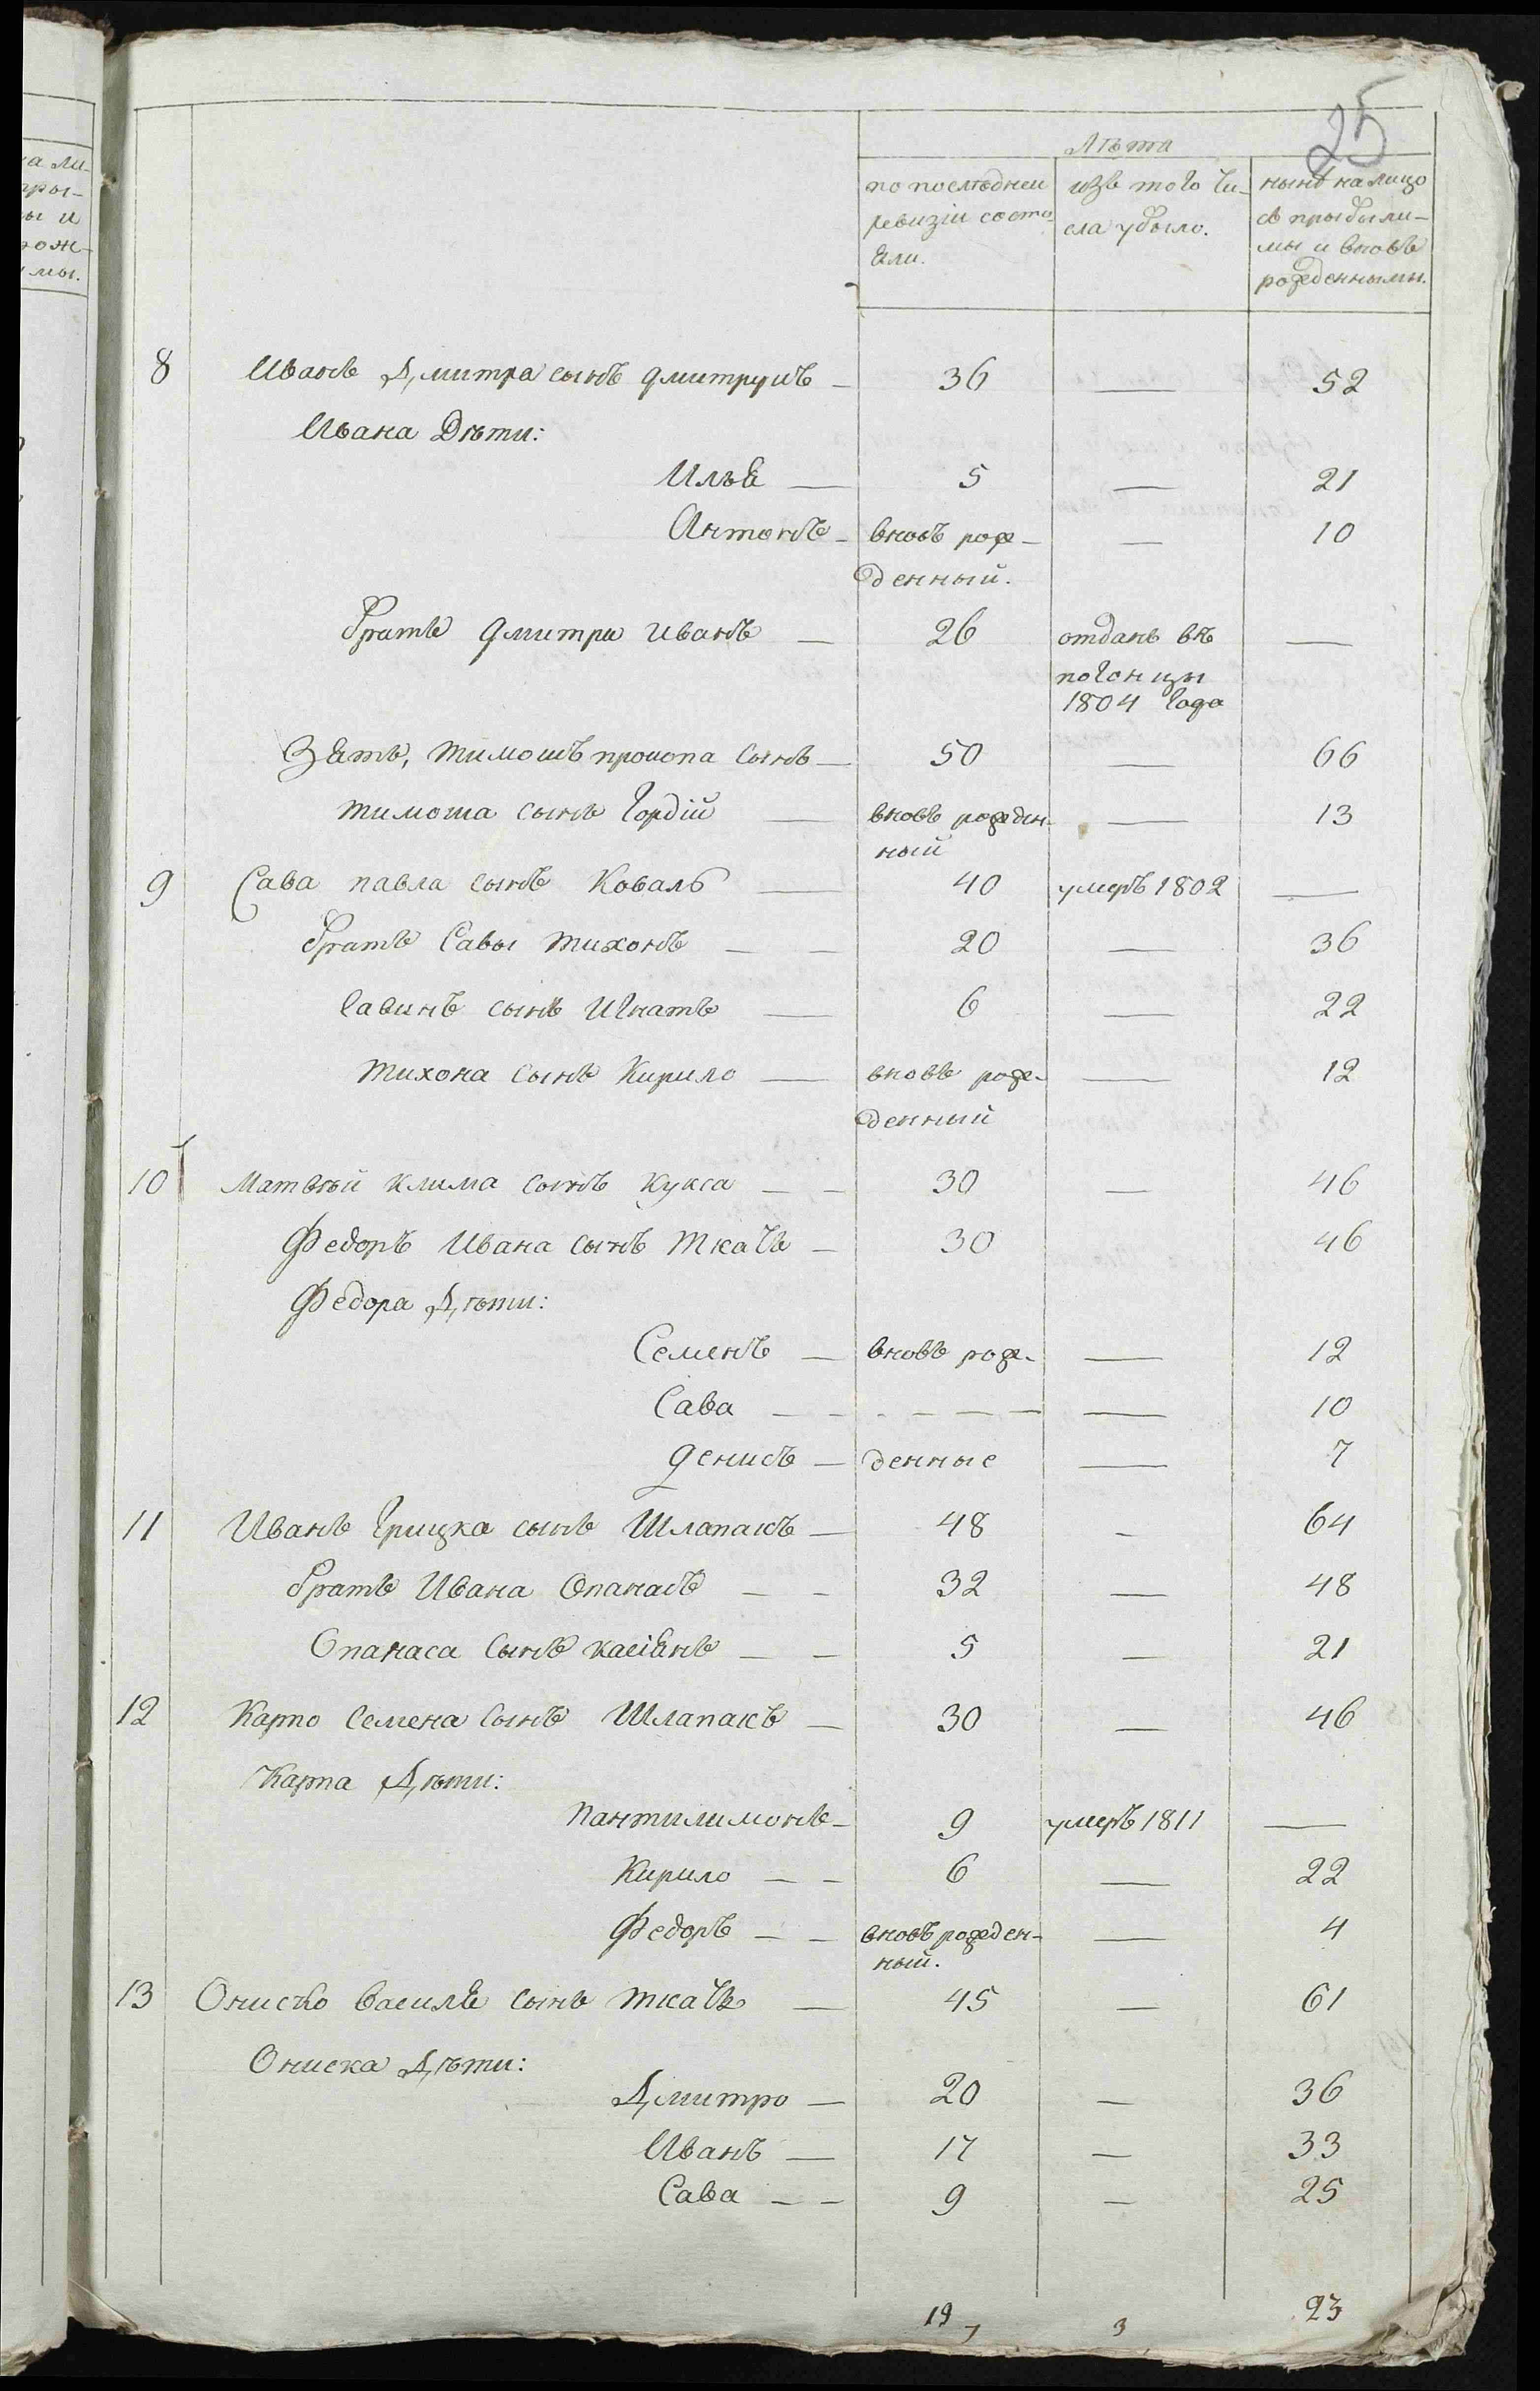 25
Лѣта
по послѣдней
ревизіи состо-
яли.
изъ того чи-
сла убыло.
нынѣ на лицо
съ прыбыли-
мы и вновь
рожденнымы.
8 Иванъ Дмитра сынъ Дмитрукъ — 36 — 52
Ивана Дѣти:
Илья — 5 — 21
Антонъ — вновь рож- — 10
денный.
братъ Дмитри Иванъ — 26 отданъ въ —
погонцы
1804 года
Зять, Тимошъ прокопа сынъ — 50 — 66
Тимоша сынъ Гордій — вновь рожден- — 13
ный
9 Сава павла сынъ Коваль — 40 умеръ 1802 —
братъ Савы Тихонъ — — 20 — 36
Савинъ сынъ Игнатъ — 6 — 22
Тихона сынъ Кирило — вновь рож- — 12
денный
10 Матвѣй клима сынъ Кукса — — 30 — 46
Федоръ Ивана сынъ Ткачъ — 30 46
Федора Дѣти:
Семенъ — вновь рож- — 12
Сава — — - — — — — — 10
Денисъ — денные — 7
11 Иванъ Грицка сынъ Шлапакъ — 48 — 64
братъ Ивана Опанасъ — — 32 — 48
Опанаса сынъ касіянъ — — 5 — 21
12 Карпо Семена сынъ Шлапакъ — 30 — 46
Карпа Дѣти:
Пантилимонъ — 9 умеръ 1811 —
Кирило — — 6 — 22
Федоръ — — вновь рожден- — 4
ный.
13 Ониско Василя сынъ Ткачъ — 45 — 61
Ониска Дѣти:
Дмитро — 20 — 36
Иванъ — 17 — 33
Сава — — 9 — 25
19 3 23